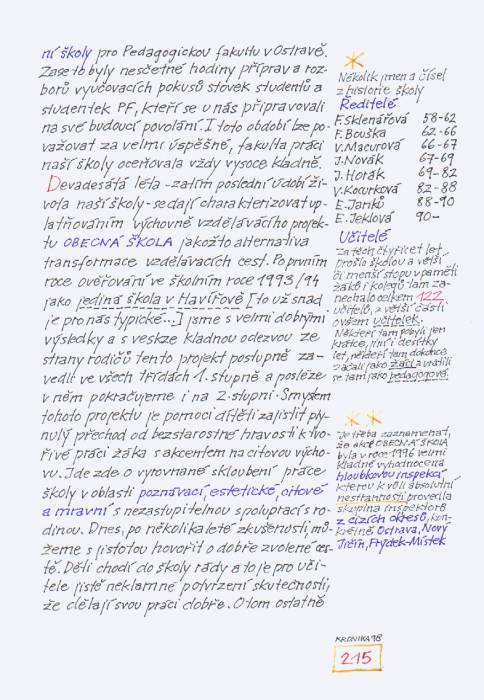 ní školy pro Pedagogickou fakultu v Ostravě.
Zase to byly nesčetné hodiny příprav a roz-
borů vyučovacích pokusů stovek studentů a
studentek PF, kteří se u nás připravovali
na své budoucí povolání. I toto období lze po-
važovat za velmi úspěšné, fakulta práci
naší školy oceňovala vždy vysoce kladně.
Devadesátá léta - zatím poslední údobí ži-
vota naší školy - se dají charakterizovat up-
latňováním výchovně vzdělávacího projek-
tu OBECNÁ ŠKOLA jakožto alternativa
transformace vzdělávacích cest. Po prvním
roce ověřování ve školním roce 1993/94
jako jediná škola v Havířově [to už snad
je pro nás typické...] jsme s velmi dobrými
výsledky a s veskze kladnou odezvou ze
strany rodičů tento projekt postupně za-
vedli ve všech třídách 1. stupně a posléze
v něm pokračujeme i na 2. stupni. Smyslem
tohoto projektu je pomoci dítěti zajistit ply-
nulý přechod od bezstarostné hravosti k tvo-
řivé práci žáka s akcentem na citovou výcho-
vu. Jde zde o vyrovnané skloubení práce
školy v oblasti poznávací, estetické, citové
a mravní s nezastupitelnou spoluprací s ro-
dinou. Dnes, po několikaleté zkušenosti, mů-
žeme s jistotou hovořit o dobře zvolené ces-
tě. Děti chodí do školy rády a to je pro uči-
tele jistě neklamné potvrzení skutečnosti,
že dělají svou práci dobře. O tom ostatně
Několik jmen a čísel
z historie školy
Ředitelé
F. Sklenářová 58-62
F. Bouška 62-66
V. Macurová 66-67
J. Novák 67-69
J. Horák 69-82
V. Kocurková 82-88
E. Janků 88-90
E. Jeklová 90--
Učitelé
Za těch čtyřicet let
prošlo školou a větší
či menší stopu v paměti
žáků i kolegů tam za-
nechalo celkem 122
učitelů, z větší části
ovšem učitelek.
Někteří tam pobyli jen
krátce, jiní i desítky
let, někteří tam dokonce
začali jako žáci a vrátili
se tam jako pedagogové.
Je třeba zaznamenat,
že akce OBECNÁ ŠKOLA
byla v roce 1996 velmi
kladně vyhodnocena
hloubkovou inspekcí
kterou k vůli absolutní
nestrannosti provedla
skupina inspektorů
z cizích okresů, kon-
krétně Ostrava, Nový
Jičín, Frýdek-Místek
KRONIKA 98
215